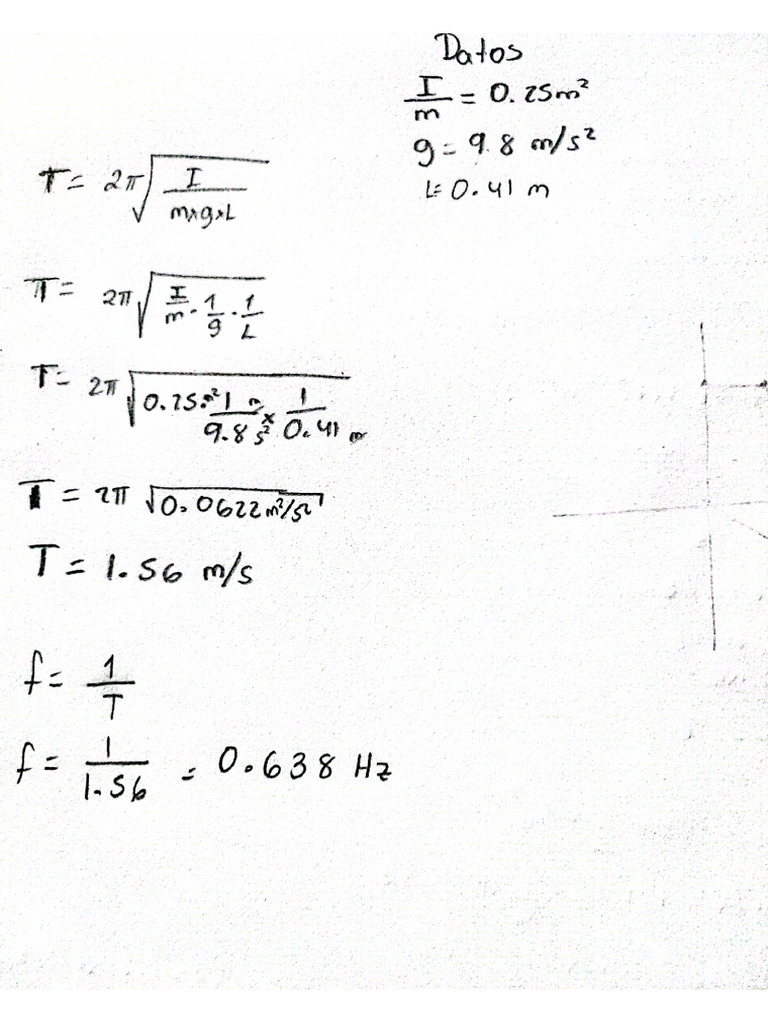 Datos
I/m = 0.25m²
g = 9.8 m/s²
L= 0.41 m
T = 2π√(I/(m×g×L))
T = 2π√(I/m · 1/g · 1/L)
T = 2π√(0.25 m² · 1/(9.8 m/s²) × 1/(0.41 m))
T = 2π √(0.0622 m²/s²)
T = 1.56 m/s
f = 1/T
f = 1/1.56 = 0.638 Hz